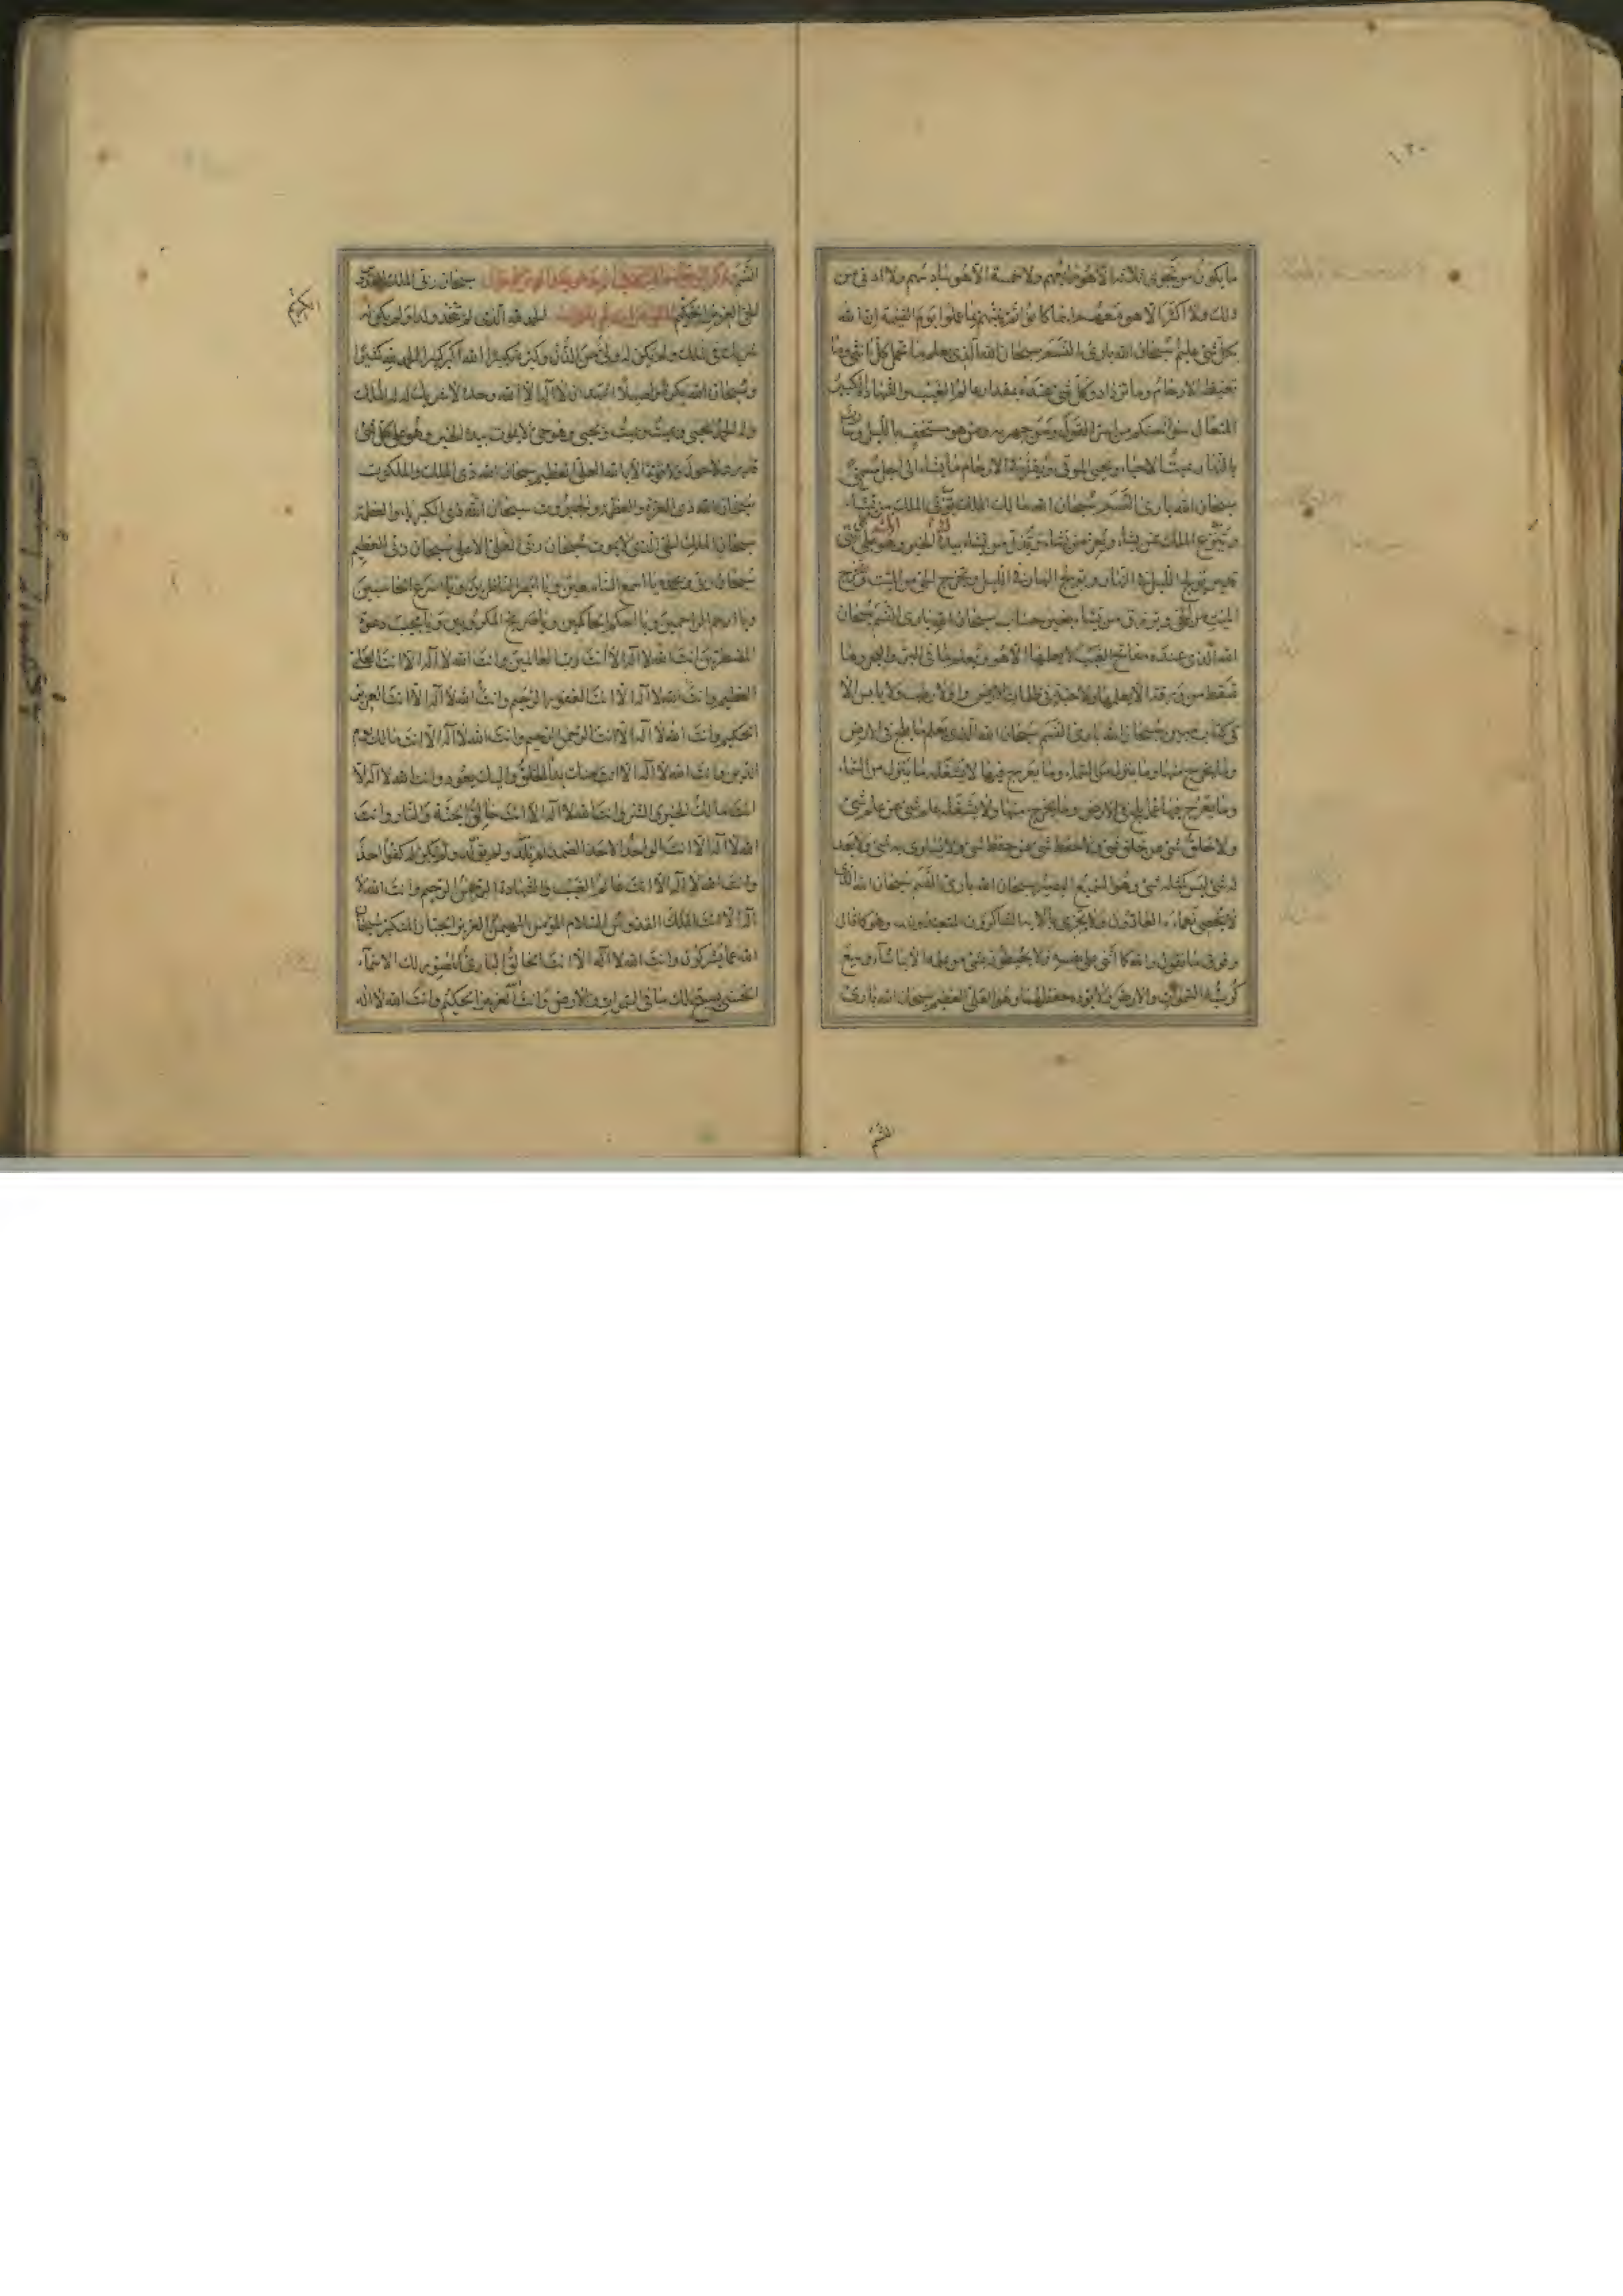 ١٢٠
ما يكون من نجوى ثلاثة الا هو رابعهم ولا خمسة الا هو سادسهم ولا ادنى من
ذلك ولا اكثر الا هو معهم اينما كانوا ثم ينبئهم بما عملوا يوم القيمة ان الله
بكل شئ عليم سبحان الله بارئ النسم سبحان الله الذى يعلم ما تحمل كل انثى وما
تغيض الارحام وما تزداد وكل شئ عنده بمقدار عالم الغيب والشهادة الكبير
المتعال سواء منكم من اسر القول ومن جهر به ومن هو مستخف بالليل وسارب
بالنهار يميت الاحياء ويحيى الموتى ويقر فى الارحام ما يشاء الى اجل مسمى
سبحان الله بارئ النسم سبحان الله مالك الملك تؤتى الملك من تشاء
وتنزع الملك ممن تشاء وتعز من تشاء وتذل من تشاء بيدك الخير وهو على كل شئ
قدير يولج الليل فى النهار ويولج النهار فى الليل ويخرج الحى من الميت ويخرج
الميت من الحى ويرزق من يشاء بغير حساب سبحان الله بارئ النسم سبحان
الله الذى عنده مفاتح الغيب لا يعلمها الا هو ويعلم ما فى البر والبحر وما
تسقط من ورقة الا يعلمها ولا حبة فى ظلمات الارض ولا رطب ولا يابس الا
فى كتاب مبين سبحان الله بارئ النسم سبحان الله الذى يعلم ما يلج فى الارض
وما يخرج منها وما ينزل من السماء وما يعرج فيها لا يشغله ما ينزل من السماء
وما يعرج فيها عما يلج فى الارض وما يخرج منها ولا يشغله علم شئ عن علم شئ
ولا خلق شئ عن خلق شئ ولا حفظ شئ عن حفظ شئ ولا يساوى به شئ ولا يعدل
له شئ ليس كمثله شئ وهو السميع البصير سبحان الله بارئ النسم سبحان الله الذى
لا يحصى نعماءه العادون ولا يجزى بآلائه الشاكرون المتعبدون وهو كما قال
وفوق ما نقول والله كما اثنى على نفسه ولا يحيطون بشئ من علمه الا بما شاء وسع
كرسيه السموات والارض ولا يؤده حفظهما وهو العلى العظيم سبحان الله بارئ
النسم
النسم سبحان ربى الملك القدوس
الحى العزيز الحكيم الحمد لله الذى لم يتخذ ولدا ولم يكن له
شريك فى الملك ولم يكن له ولى من الذل وكبره تكبيرا الله اكبر كبيرا والحمد لله كثيرا
وسبحان الله بكرة واصيلا اشهد ان لا اله الا الله وحده لا شريك له له الملك
وله الحمد يحيى ويميت ويميت ويحيى وهو حى لا يموت بيده الخير وهو على كل شئ
قدير ولا حول ولا قوة الا بالله العلى العظيم سبحان الله ذى الملك والملكوت
سبحان الله ذى العزة والعظمة والجبروت سبحان الله ذى الكبرياء والعظمة
سبحان الملك الحى الذى لا يموت سبحان ربى العلى الاعلى سبحان ربى العظيم
سبحان ربى وبحمده يا اسمع السامعين ويا ابصر الناظرين ويا اسرع الحاسبين
ويا ارحم الراحمين ويا احكم الحاكمين ويا صريخ المكروبين ويا مجيب دعوة
المضطرين انت الله لا اله الا انت رب العالمين وانت الله لا اله الا انت العلى
العظيم وانت الله لا اله الا انت الغفور الرحيم وانت الله لا اله الا انت العزيز
الحكيم وانت الله لا اله الا انت الرحمن الرحيم وانت الله لا اله الا انت مالك يوم
الدين وانت الله لا اله الا انت منك بدأ الخلق واليك يعود وانت الله لا اله الا
انت مالك الخير والشر وانت الله لا اله الا انت خالق الجنة والنار وانت
الله لا اله الا انت الواحد الاحد الصمد لم يلد ولم يولد ولم يكن له كفوا احد
وانت الله لا اله الا انت عالم الغيب والشهادة الرحمن الرحيم وانت الله لا
اله الا انت الملك القدوس السلام المؤمن المهيمن العزيز الجبار المتكبر سبحان
الله عما يشركون وانت الله لا اله الا انت الخالق البارئ المصور لك الاسماء
الحسنى يسبح لك ما فى السموات والارض وانت العزيز الحكيم وانت الله لا اله